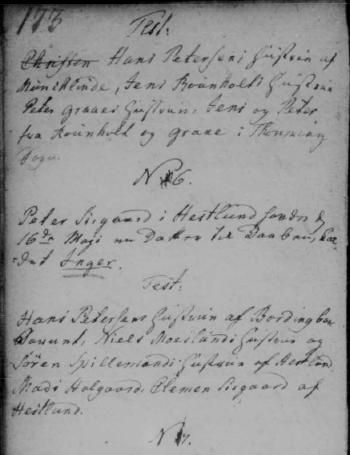 173
Test:
Christen Hans Petersens Hustrue af
Munklinde, Jens Rounholts Hustrue
Peter Graaes Hustrue, Jens og Peter
fra Rounholt og Graae i Thorning
Sogn.
N 6.
Peter Siigaard i Hestlund havde d
16de Maji en Datter til Daaben, kal-
det Inger.
Test:
Hans Petersens Hustrue af Bording
Niels Moeslands Hustrue og
Søren Spillemands Hustrue af Hestlund
Mads Holgaard, Clemen Siigaard af
Hestlund.
N 7.